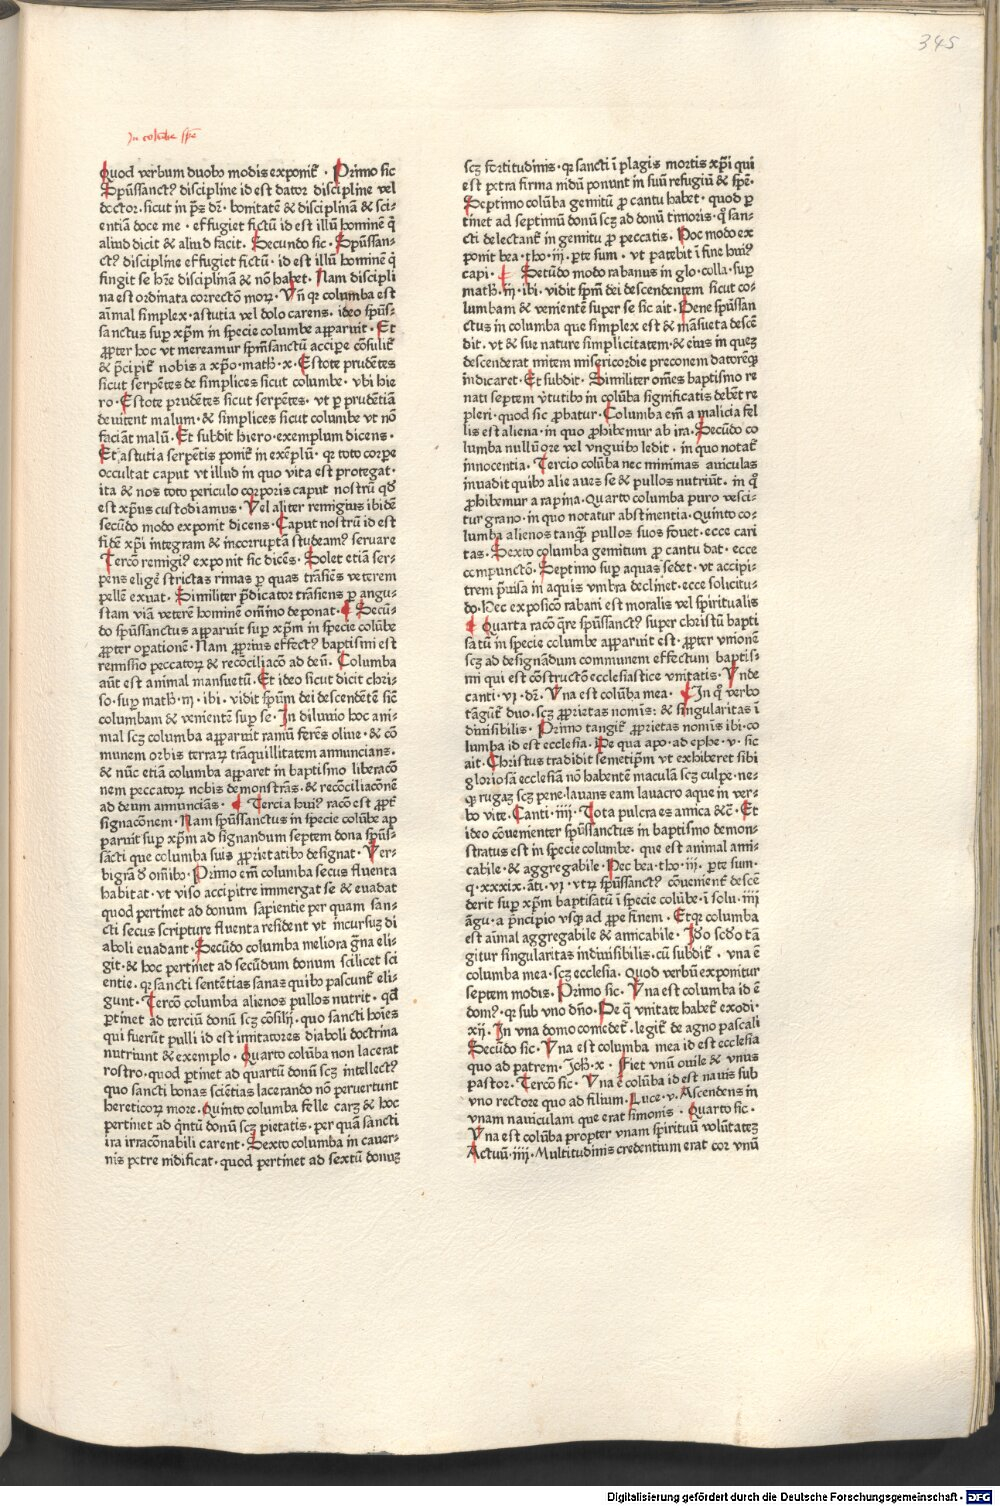 345
In colūbe spē
Quod verbum duobꝰ modis exponiť · Primo sic
Spūssanctꝰ discipline id est dator discipline vel
doctor · sicut in pͣs dr̄ · bonitatē & disciplinā & sci-
entiā doce me · effugiet fictū id est illū hominē q̄
aliud dicit & aliud facit · Secundo sic · Spūssan-
ctꝰ discipline effugiet fictū · id est illū hominē q̄
fingit se hr̄e disciplinā & nō habet · Nam discipli
na est ordinata correctō moꝝ · Vn̄ qꝛ columba est
aīmal simplex · astutia vel dolo carens · ideo spūs-
sanctus supͬ xp̄m in specie columbe apparuit · Et
ꝓpter hoc vt mereamur spm̄sanctū accipe cōsuliť
& p̄cipiť nobis a xp̄o · math · x · Estote prudētes
sicut serpētes & simplices sicut columbe · vbi hie
ro · Estote prudētes sicut serpētes · vt ꝑ prudētiā
deuitent malum · & simplices sicut columbe vt nō
faciāt malū · Et subdit hiero · exemplum dicens ·
Et astutia serpētis poniť in exēplū · qꝛ toto corpe
occultat caput vt illud in quo vita est protegat ·
ita & nos toto periculo corporis caput nostrū qd̄
est xp̄us custodiamus · Vel aliter remigius ibidē
secūdo modo exponit dicens · Caput nostrū id est
fidē xp̄i integram & incorruptā studeamꝰ seruare
Tercō remigiꝰ exponit sic dicēs · Solet etiā ser-
pens eligē strictas rimas ꝑ quas trāsiēs veterem
pellē exuat · Similiter p̄dicator trāsiens ꝑ angu-
stam viā veterē hominē om̄ino deponat · ¶ Secū-
do spūssanctus apparuit supͬ xp̄m in specie colūbe
ꝓpter operationē · Nam ꝓprius effectꝰ baptismi est
remissio peccatoꝝ & recōciliacō ad deū · Columba
aūt est animal mansuetū · Et ideo sicut dicit chri-
so · supͬ math · iij · ibi · vidit spūm dei descendētē sic̄
columbam & venientē supͬ se · In diluuio hoc ani-
mal scꝫ columba apparuit ramū ferēs oliue · & cō
munem orbis terraꝝ trāquillitatem annuncians ·
& nūc etiā columba apparet in baptismo liberacō
nem peccatoꝝ nobis demonstrās · & recōciliacōnē
ad deum annunciās · ¶ Tercia huiꝰ racō est ꝓpť
signacōnem · Nam spūssanctus in specie colūbe ap
paruit supͬ xp̄m ad signandum septem dona spūs-
sācti que columba suis ꝓprietatibꝰ designat · Ver-
bigrā ī om̄ibꝰ · Primo em̄ columba secus fluenta
habitat · vt viso accipitre immergat se & euadat
quod pertinet ad donum sapientie per quam san-
cti secus scripture fluenta resident vt incursuꝫ di
aboli euadant · Secūdo columba meliora g̃na eli-
git · & hoc pertinet ad secūdum donum scilicet sci
entie · qꝛ sancti sentētias sanas quibꝰ pascunť eli-
gunt · Tercō columba alienos pullos nutrit · qd̄
ꝑtinet ad terciū donū scꝫ cōsilij · quo sancti hoīes
qui fuerūt pulli id est imitatores diaboli doctrina
nutriunt & exemplo · Quarto colūba non lacerat
rostro · quod pertinet ad quartū donū scꝫ intellectꝰ
quo sancti bonas sciētias lacerando nō peruertunt
hereticoꝝ more · Quinto columba felle carꝫ & hoc
pertinet ad q̄ntū donū scꝫ pietatis · per quā sancti
ira irracōnabili carent · Sexto columba in cauer-
nis petre nidificat · quod pertinet ad sextū donuꝫ
scꝫ fortitudinis · qꝛ sancti ī plagis mortis xp̄i qui
est petra firma nidū ponunt in suū refugiū & spē ·
Septimo colūba gemitū ꝓ cantu habet · quod ꝑ
tinet ad septimū donū scꝫ ad donū timoris · q̄ san-
cti delectanť in gemitu ꝓ peccatis · Hoc modo ex
ponit bea · tho · iij · pte sum · vt patebit ī fine huiꝰ
capi · ¶ Secūdo modo rabanus in glo · colla · supͬ
math · iij · ibi · vidit spm̄ dei descendentem sicut co-
lumbam & venientē super se sic ait · Bene spūssan
ctus in columba que simplex est & māsueta descē
dit · vt & sue nature simplicitatem · & eius in queꝫ
descenderat mitem misericordie preconem datorēqꝫ
indicaret · Et subdit · Similiter om̄es baptismo re
nati septem v̄tutibꝰ in colūba significatis debēt re
pleri · quod sic ꝓbatur · Columba em̄ a malicia fel
lis est aliena · in quo ꝓhibemur ab ira · Secūdo co
lumba nullū ore vel vnguibꝰ ledit · in quo notať
innocentia · Tercio colūba nec minimas auiculas
inuadit quibꝰ alie aues se & pullos nutriūt · in q̊
ꝓhibemur a rapina · Quarto columba puro vesci-
tur grano · in quo notatur abstinentia · Quinto co-
lumba alienos tanqͣꝫ pullos suos fouet · ecce cari
tas · Sexto columba gemitum ꝓ cantu dat · ecce
compunctō · Septimo supͬ aquas sedet · vt accipi-
trem p̄uisa in aquis vmbra declinet · ecce solicitu-
do · Hec exposicō rabani est moralis vel spiritualis
¶ Quarta racō q̄re spūssanctꝰ super christū bapti
satū in specie columbe apparuit est · ꝓpter vnionē
scꝫ ad designādum communem effectum baptis-
mi qui est cōstructō ecclesiastice vnitatis · Vnde
canti · vj · dr̄ · Vna est colūba mea · ¶ In q̊ verbo
tāgūť duo · scꝫ ꝓprietas nomīs : & singularitas ī
diuisibilis · Primo tangiť ꝓprietas nomīs ibi · co
lumba id est ecclesia · De qua apo · ad ephe · v · sic
ait · Christus tradidit semetip̄m vt exhiberet sibi
gloriosā ecclesiā nō habentē maculā scꝫ culpe · ne-
qꝫ rugaꝫ scꝫ pene · lauans eam lauacro aque in ver-
bo vite · Canti · iiij · Tota pulcra es amica &c̄ · Et
ideo cōuenienter spūssanctus in baptismo demon-
stratus est in specie columbe · que est animal ami-
cabile · & aggregabile · Hec bea · tho · iij · pte sum ·
q · xxxix · āti · vj · vtꝫ spūssanctꝰ cōuenienť descē
derit supͬ xp̄m baptisatū ī specie colūbe · ī solu · iiij
āgu · a p̄ncipio vsqꝫ ad ꝓpe finem · Etqꝫ columba
est aīmal aggregabile & amicabile · Id̊o scd̊o tā
gitur singularitas indiuisibilis · cū subdiť · vna ē
columba mea · scꝫ ecclesia · Quod verbū exponitur
septem modis · Primo sic · Vna est columba id ē
domꝰ · qꝛ sub vno dn̄o · De q̄ vnitate habeť exodi ·
xij · In vna domo comedeť · legiť de agno pascali
Secūdo sic · Vna est columba mea id est ecclesia
quo ad patrem · Joh · x · Fiet vnū ouile & vnus
pastor · Tercō sic · Vna ē colūba id est nauis sub
vno rectore quo ad filium · Luce · v · Ascendens in
vnam nauiculam que erat simonis · Quarto sic ·
Vna est colūba propter vnam spirituū volūtateꝫ
Actuū · iiij · Multitudinis credentium erat cor vnū
Digitalisierung gefördert durch die Deutsche Forschungsgemeinschaft - DFG